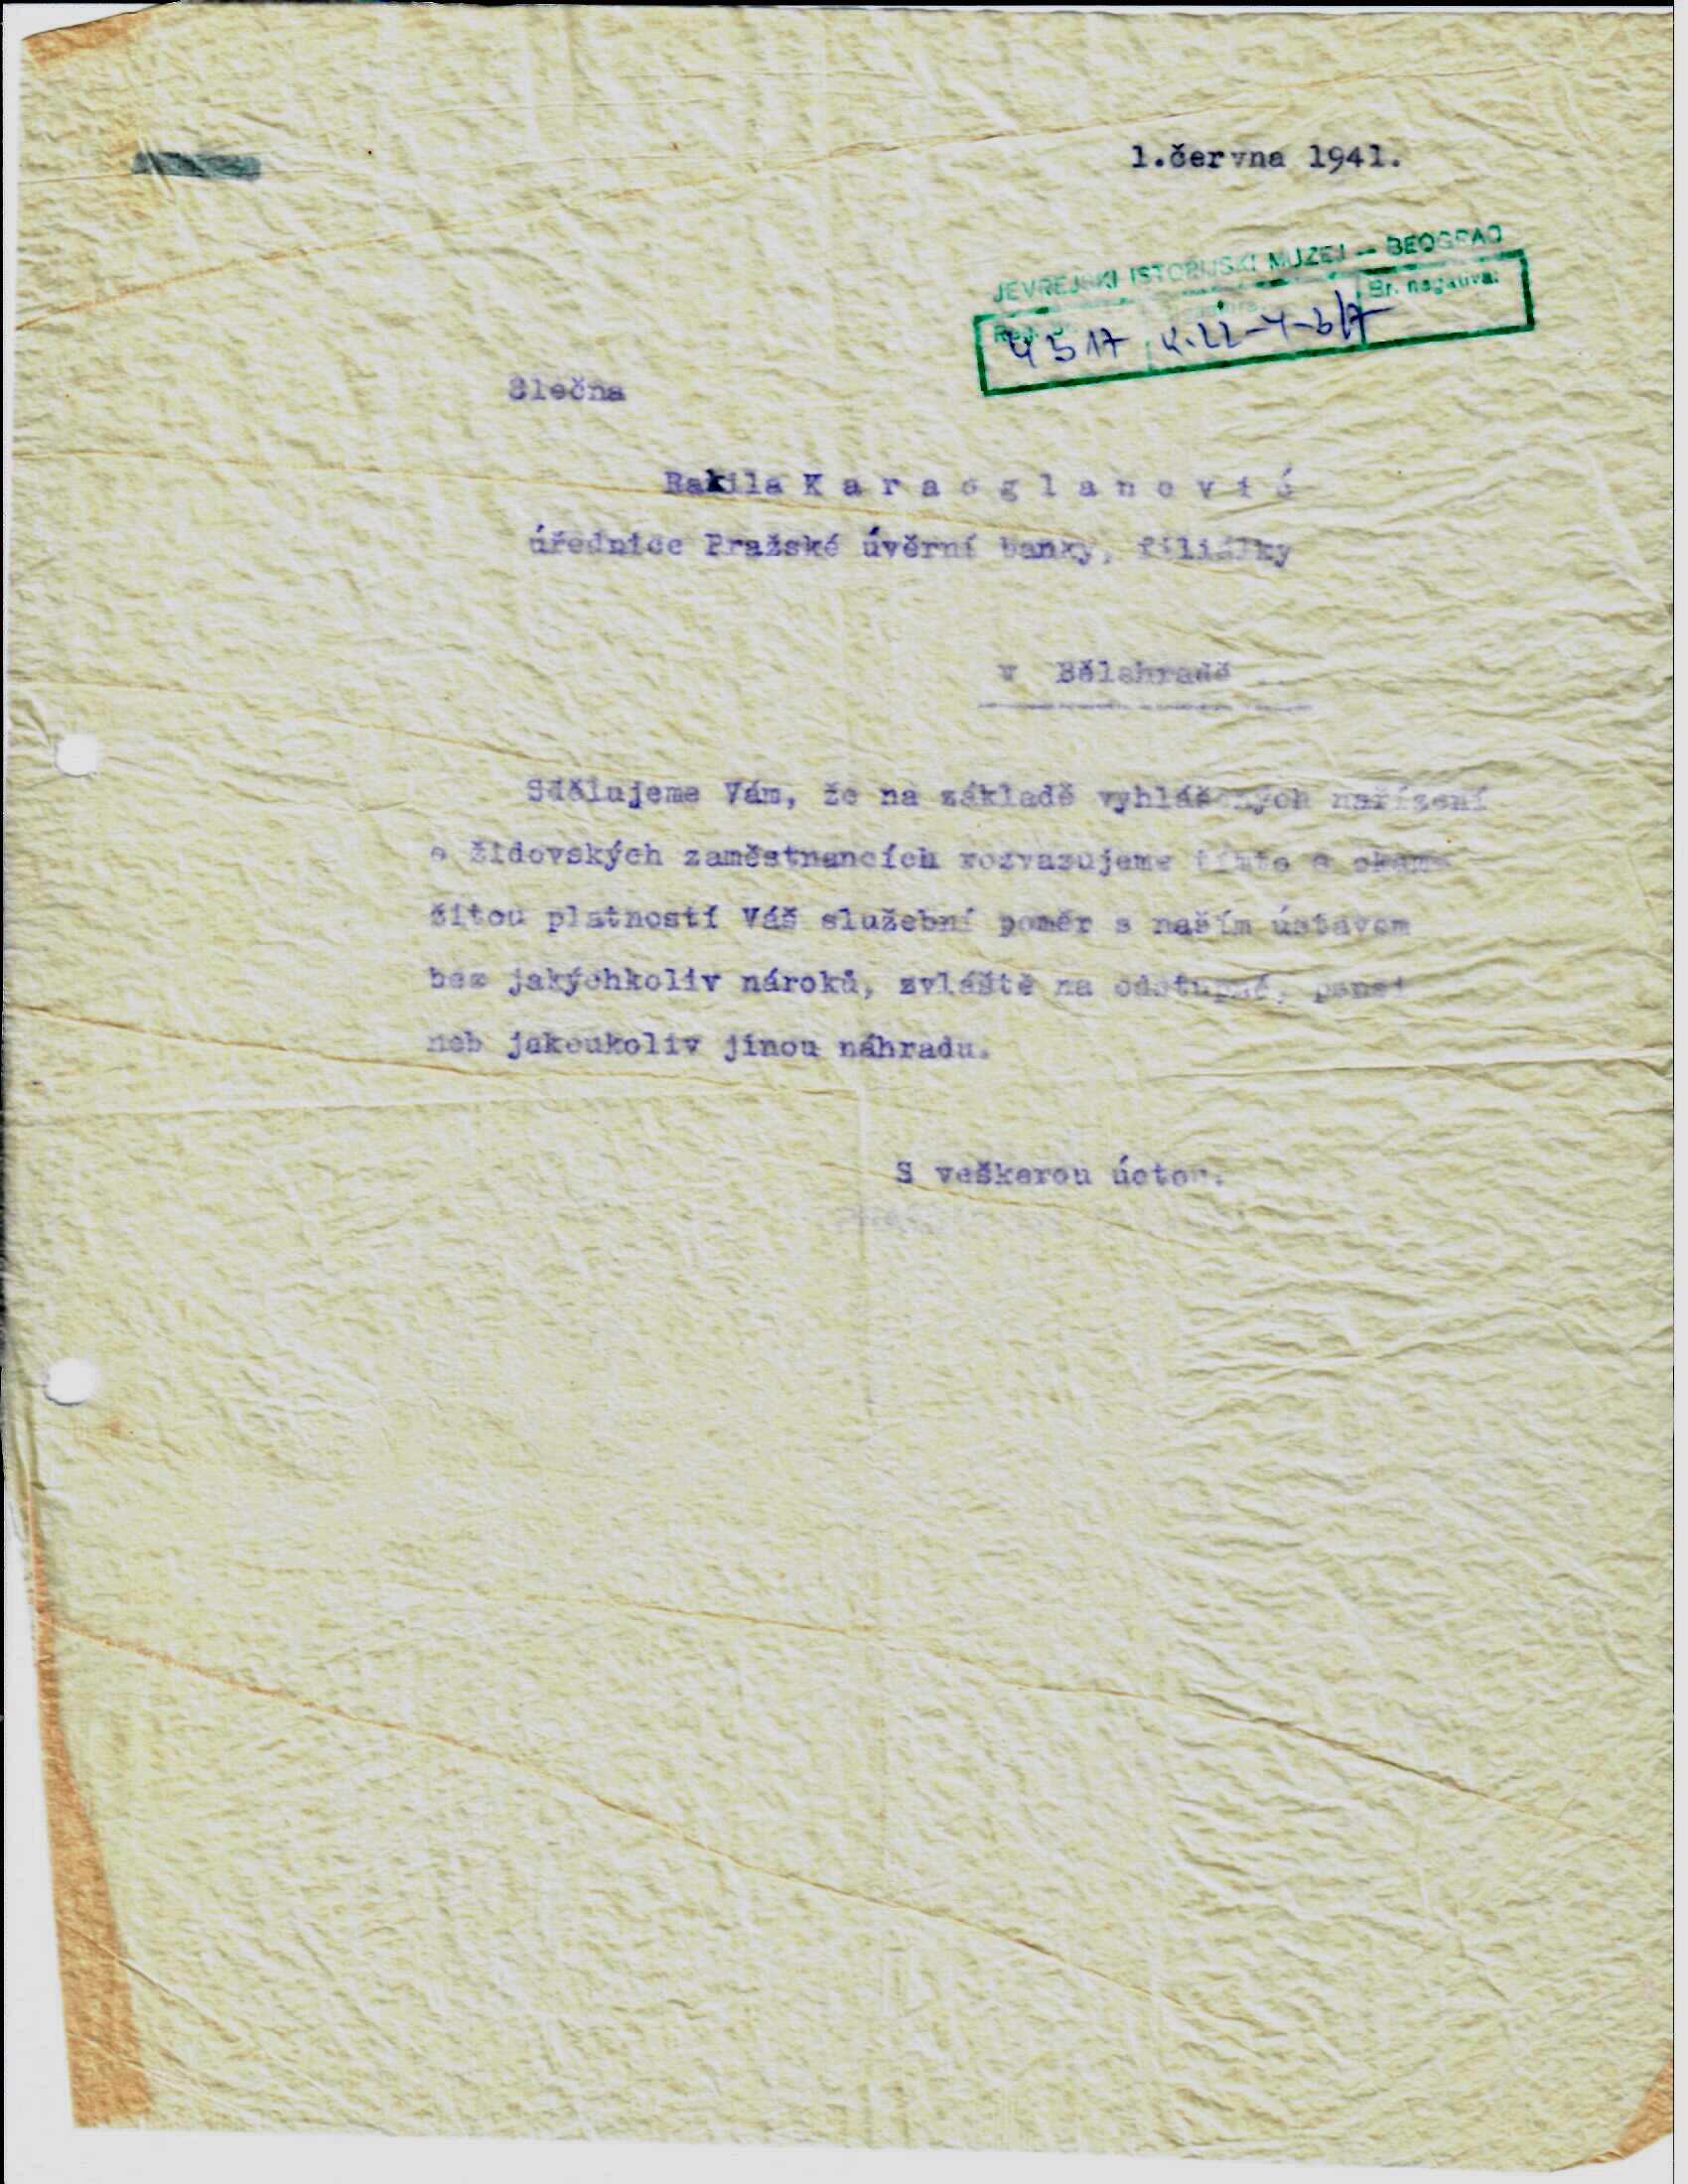 1.června 1941.
JEVREJSKI ISTORIJSKI MUZEJ — BEOGRAD
Reg. Br. negativa:
4517 K.22-4-b/7
Slečna
Rakila Karaoglanović
úřednice Pražské úvěrní banky, filiálky
v Bělehradě
Sdělujeme Vám, že na základě vyhlášených nařízení
o židovských zaměstnancích rozvazujeme tímto s okam-
žitou platností Váš služební poměr s naším ústavem
bez jakýchkoliv nároků, zvláště na odstupné, pensi
neb jakoukoliv jinou náhradu.
S veškerou úctou.